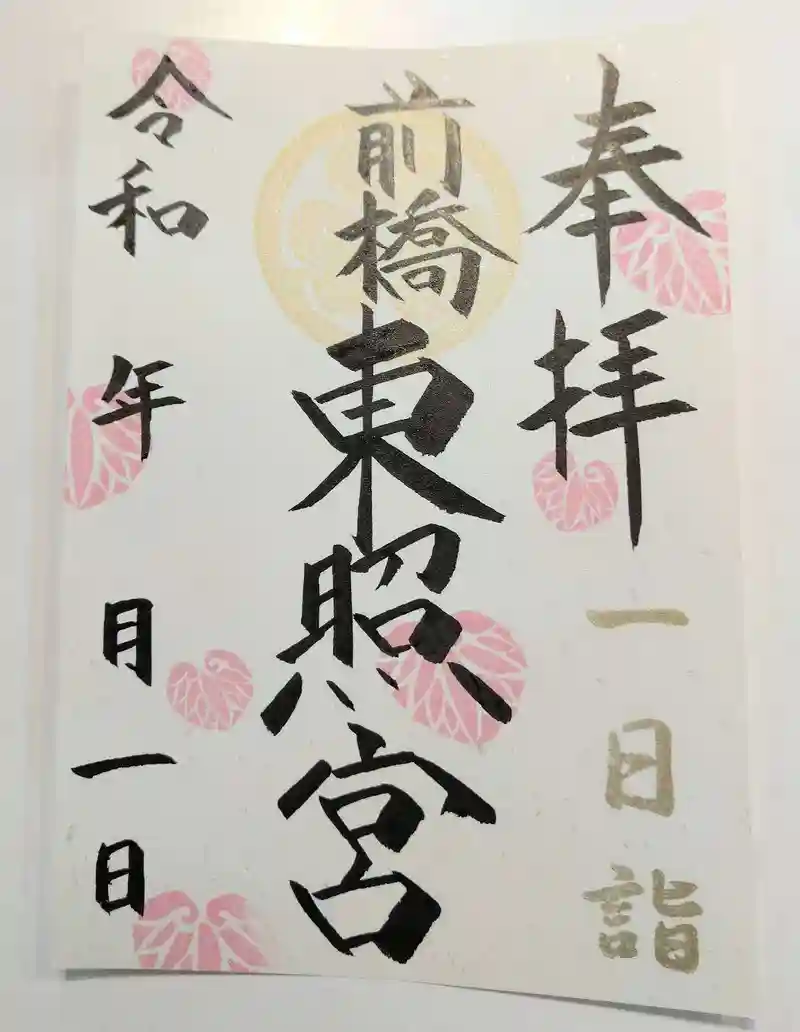 奉拝
一日詣
前橋東照宮
令和 年 月一日